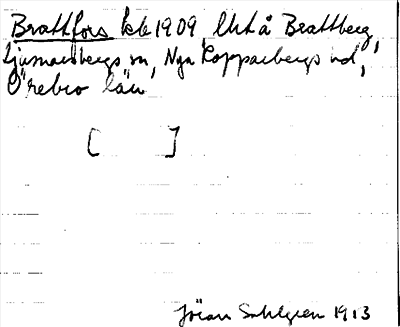 Brattfors kb 1909 Uct å Brattberg,
Ljusnarsbergs sn, Nya Kopparbergs hd,
Örebro län
[ ]
Jöran Sahlgren 1913